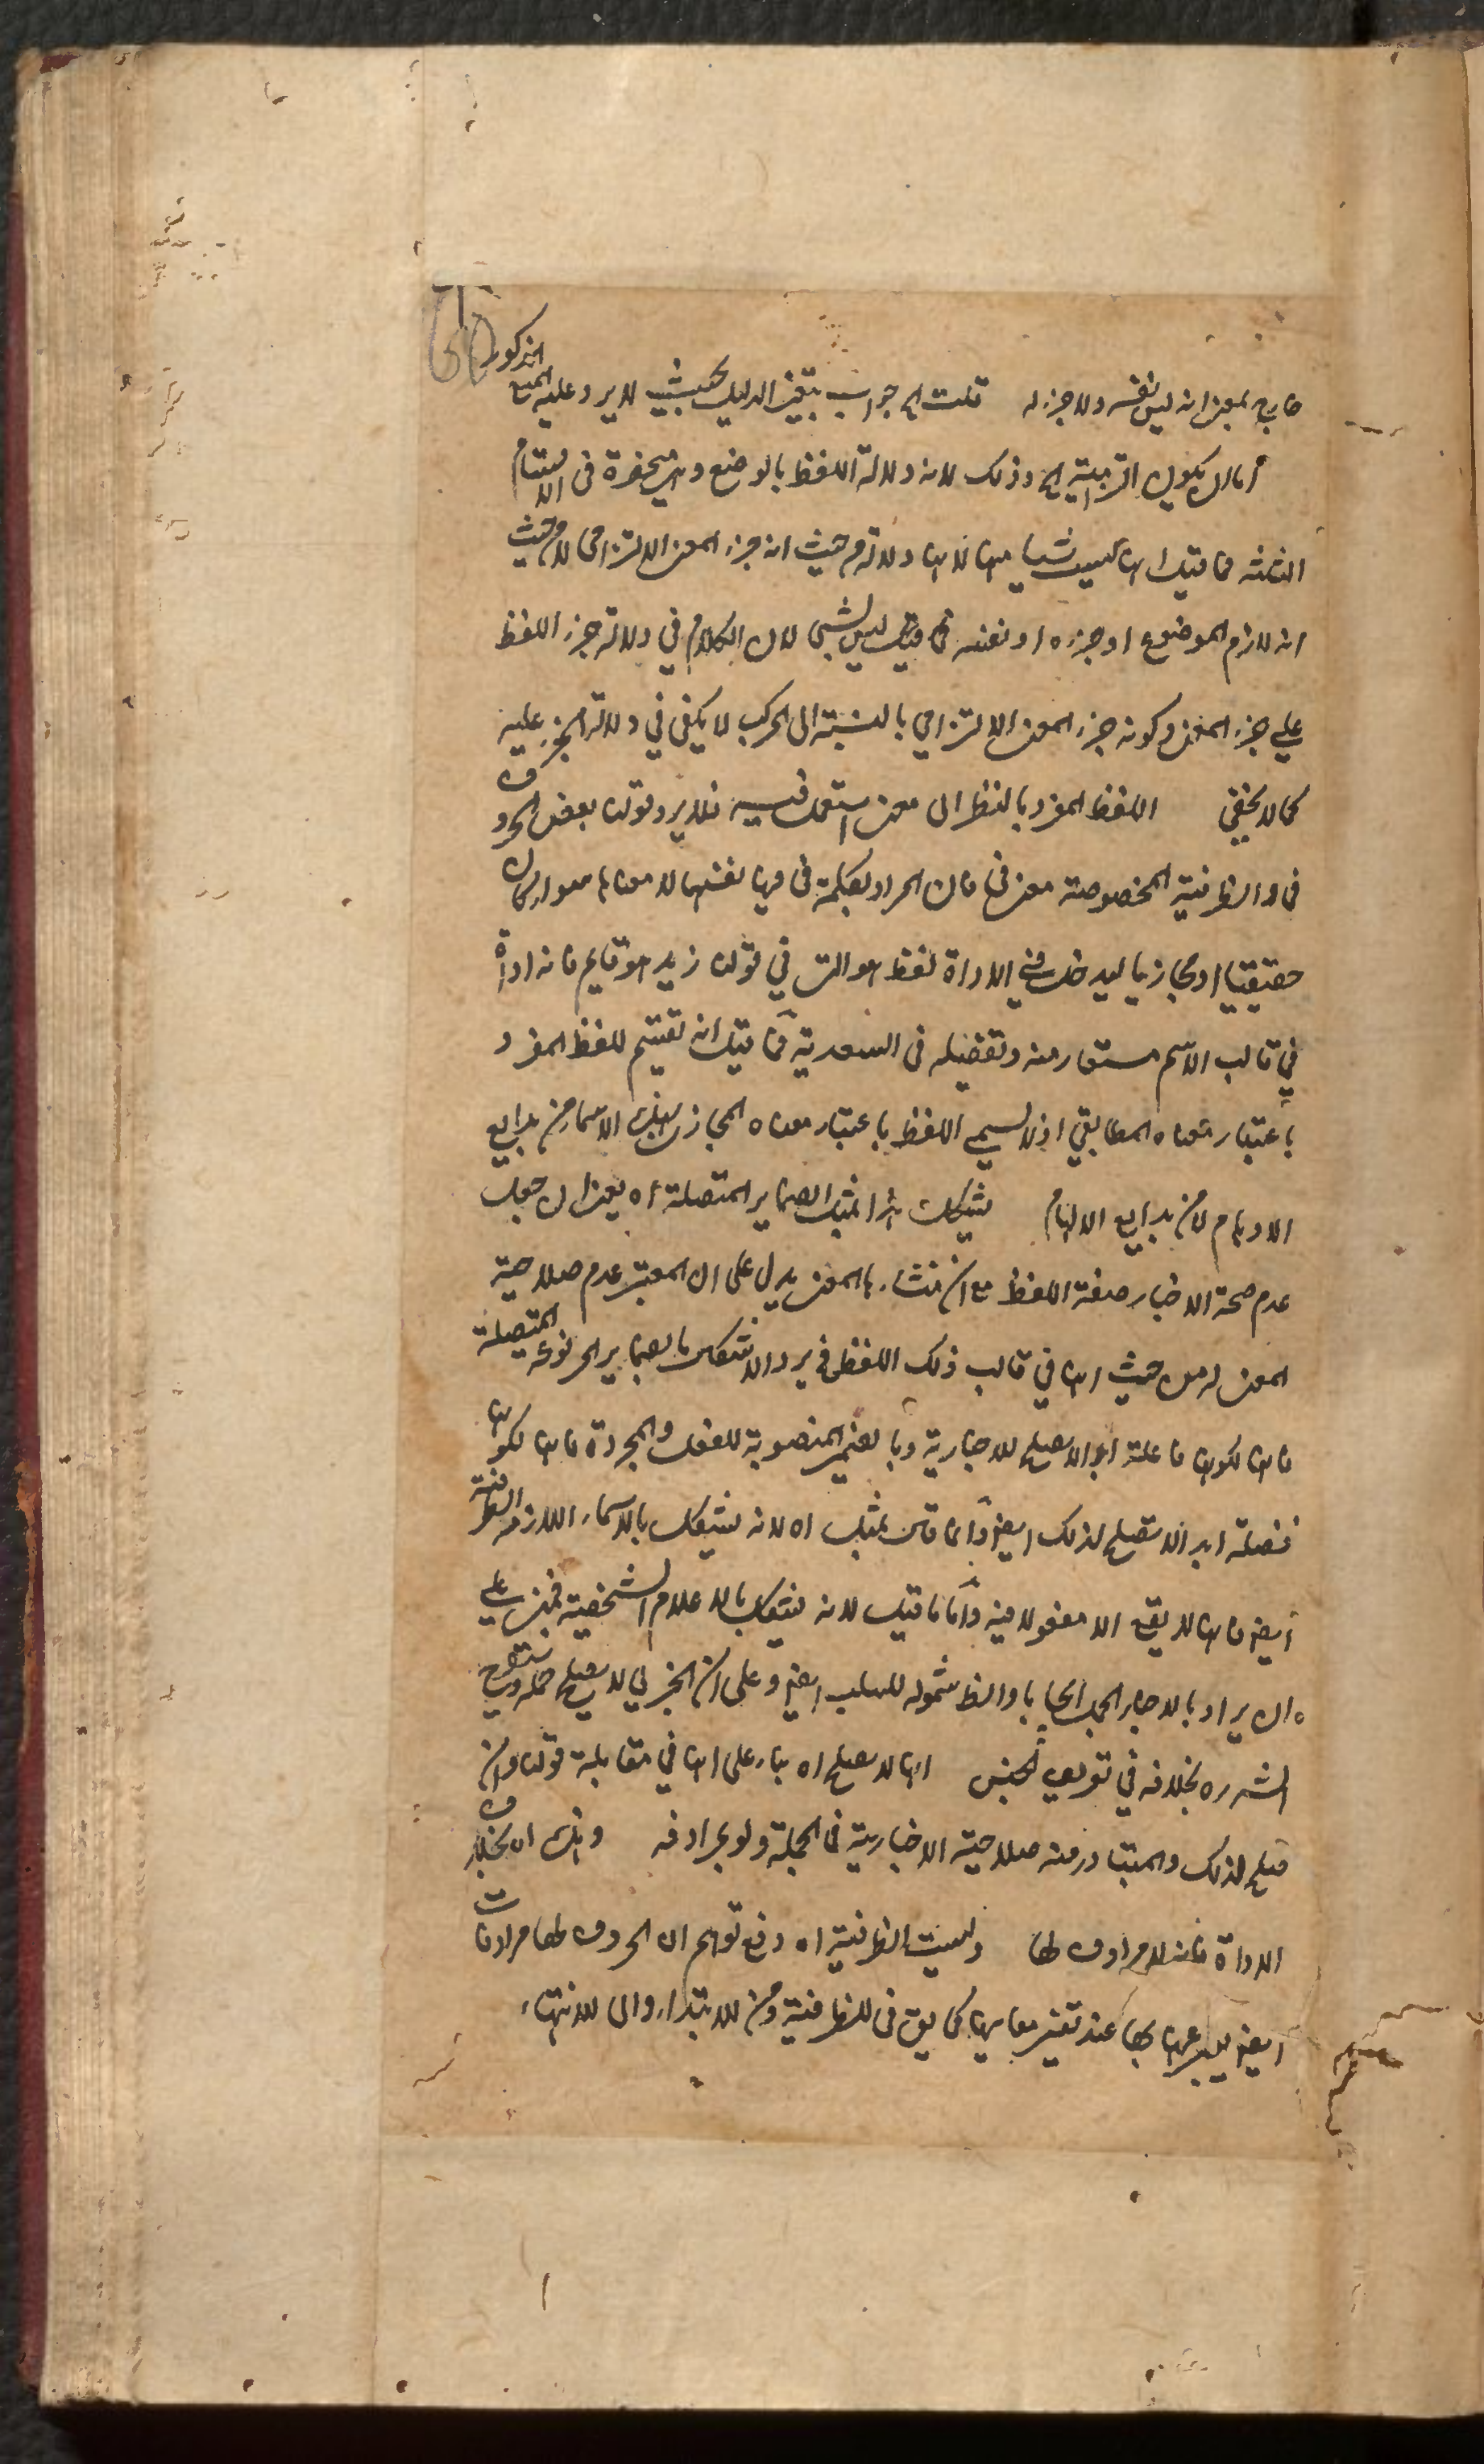 خارج بمعنى انه ليس نفسه ولا جزءه قلت الخ جواب بتغيير الدليل بحيث لا يرد عليه المنع المذكور
اما ان يكون التزامية الخ وذلك لانه دلالة اللفظ بالوضع وهى منحصرة فى الاقسام
الثلثة فما قيل انها ليست شيئا منها لانها دلالة من حيث انه جزء المعنى الالتزامى لا من حيث
انه لازم الموضوع او جزءه او نفسه فما قيل ليس بشئ لان الكلام في دلالة جزء اللفظ
على جزء المعنى وكونه جزء المعنى الالتزامي بالنسبة الى المركب لا يكفى في دلالة الجزء عليه
كما لا يخفى اللفظ المفرد بالنظر الى معنى استعمل فيه فلا يرد قولنا بعض الحروف
فى والظرفية المخصوصة معنى فى فان المراد بكلمة فى فيها نفسها لا معناها سواء كان
حقيقيا او مجازيا ليدخل في الاداة لفظ هو التى في قولنا زيد هو قايم فانه اداة
في قالب الاسم مستعار منه وتفصيله فى السعدية فما قيل انه تقسيم للفظ المفرد
باعتبار معناه المطابقي اذ لا يسمى اللفظ باعتبار معناه المجازى بهذه الاسماء من بدايع
الاوهام لا من بدايع الالهام يشكل هذا بمثل الضماير المتصلة اه يعنى ان جعل
عدم صحة الاخبار صفة اللفظ مع ان منشاءها المعنى يدل على ان المعتبر عدم صلاحية
المعنى له من حيث انها في قالب ذلك اللفظ فيرد الاشكال بالضماير المرفوعة المتصلة
فانها لكونها فاعلة ابدا لا يصلح للاخبارية وبالضمير المنصوبة للفعل والمجرورة فانها لكونها
فضلة ابدا لا يصلح لذلك ايضا وانما قال بمثل اه لانه يشكل بالاسماء اللازمة الظرفية
ايضا فانها لا يقع الا مفعولا فيه واما ما قيل لانه يشكل بالاعلام الشخصية فمبنى على
ان يراد بالاخبار الحمل ايجابا والظ شموله للسلب ايضا وعلى ان الجزئي لا يصلح حمله وستعرح
الشرح بخلافه في تعريف الجنس انها لا يصلح اه بناء على انها في مقابلة قولنا وان
صلح لذلك والمتبادر منه صلاحية الاخبارية فى الجملة ولو بمرادفه وهذا اه بخلاف
الاداة فانه لا مرادف لها وليست الظرفية اه دفع توهم ان الحروف لها مرادفات
ايضا يعبر عنها بها عند تفسير معانيها كما يق فى للظرفية ومن للابتداء والى للانتهاء